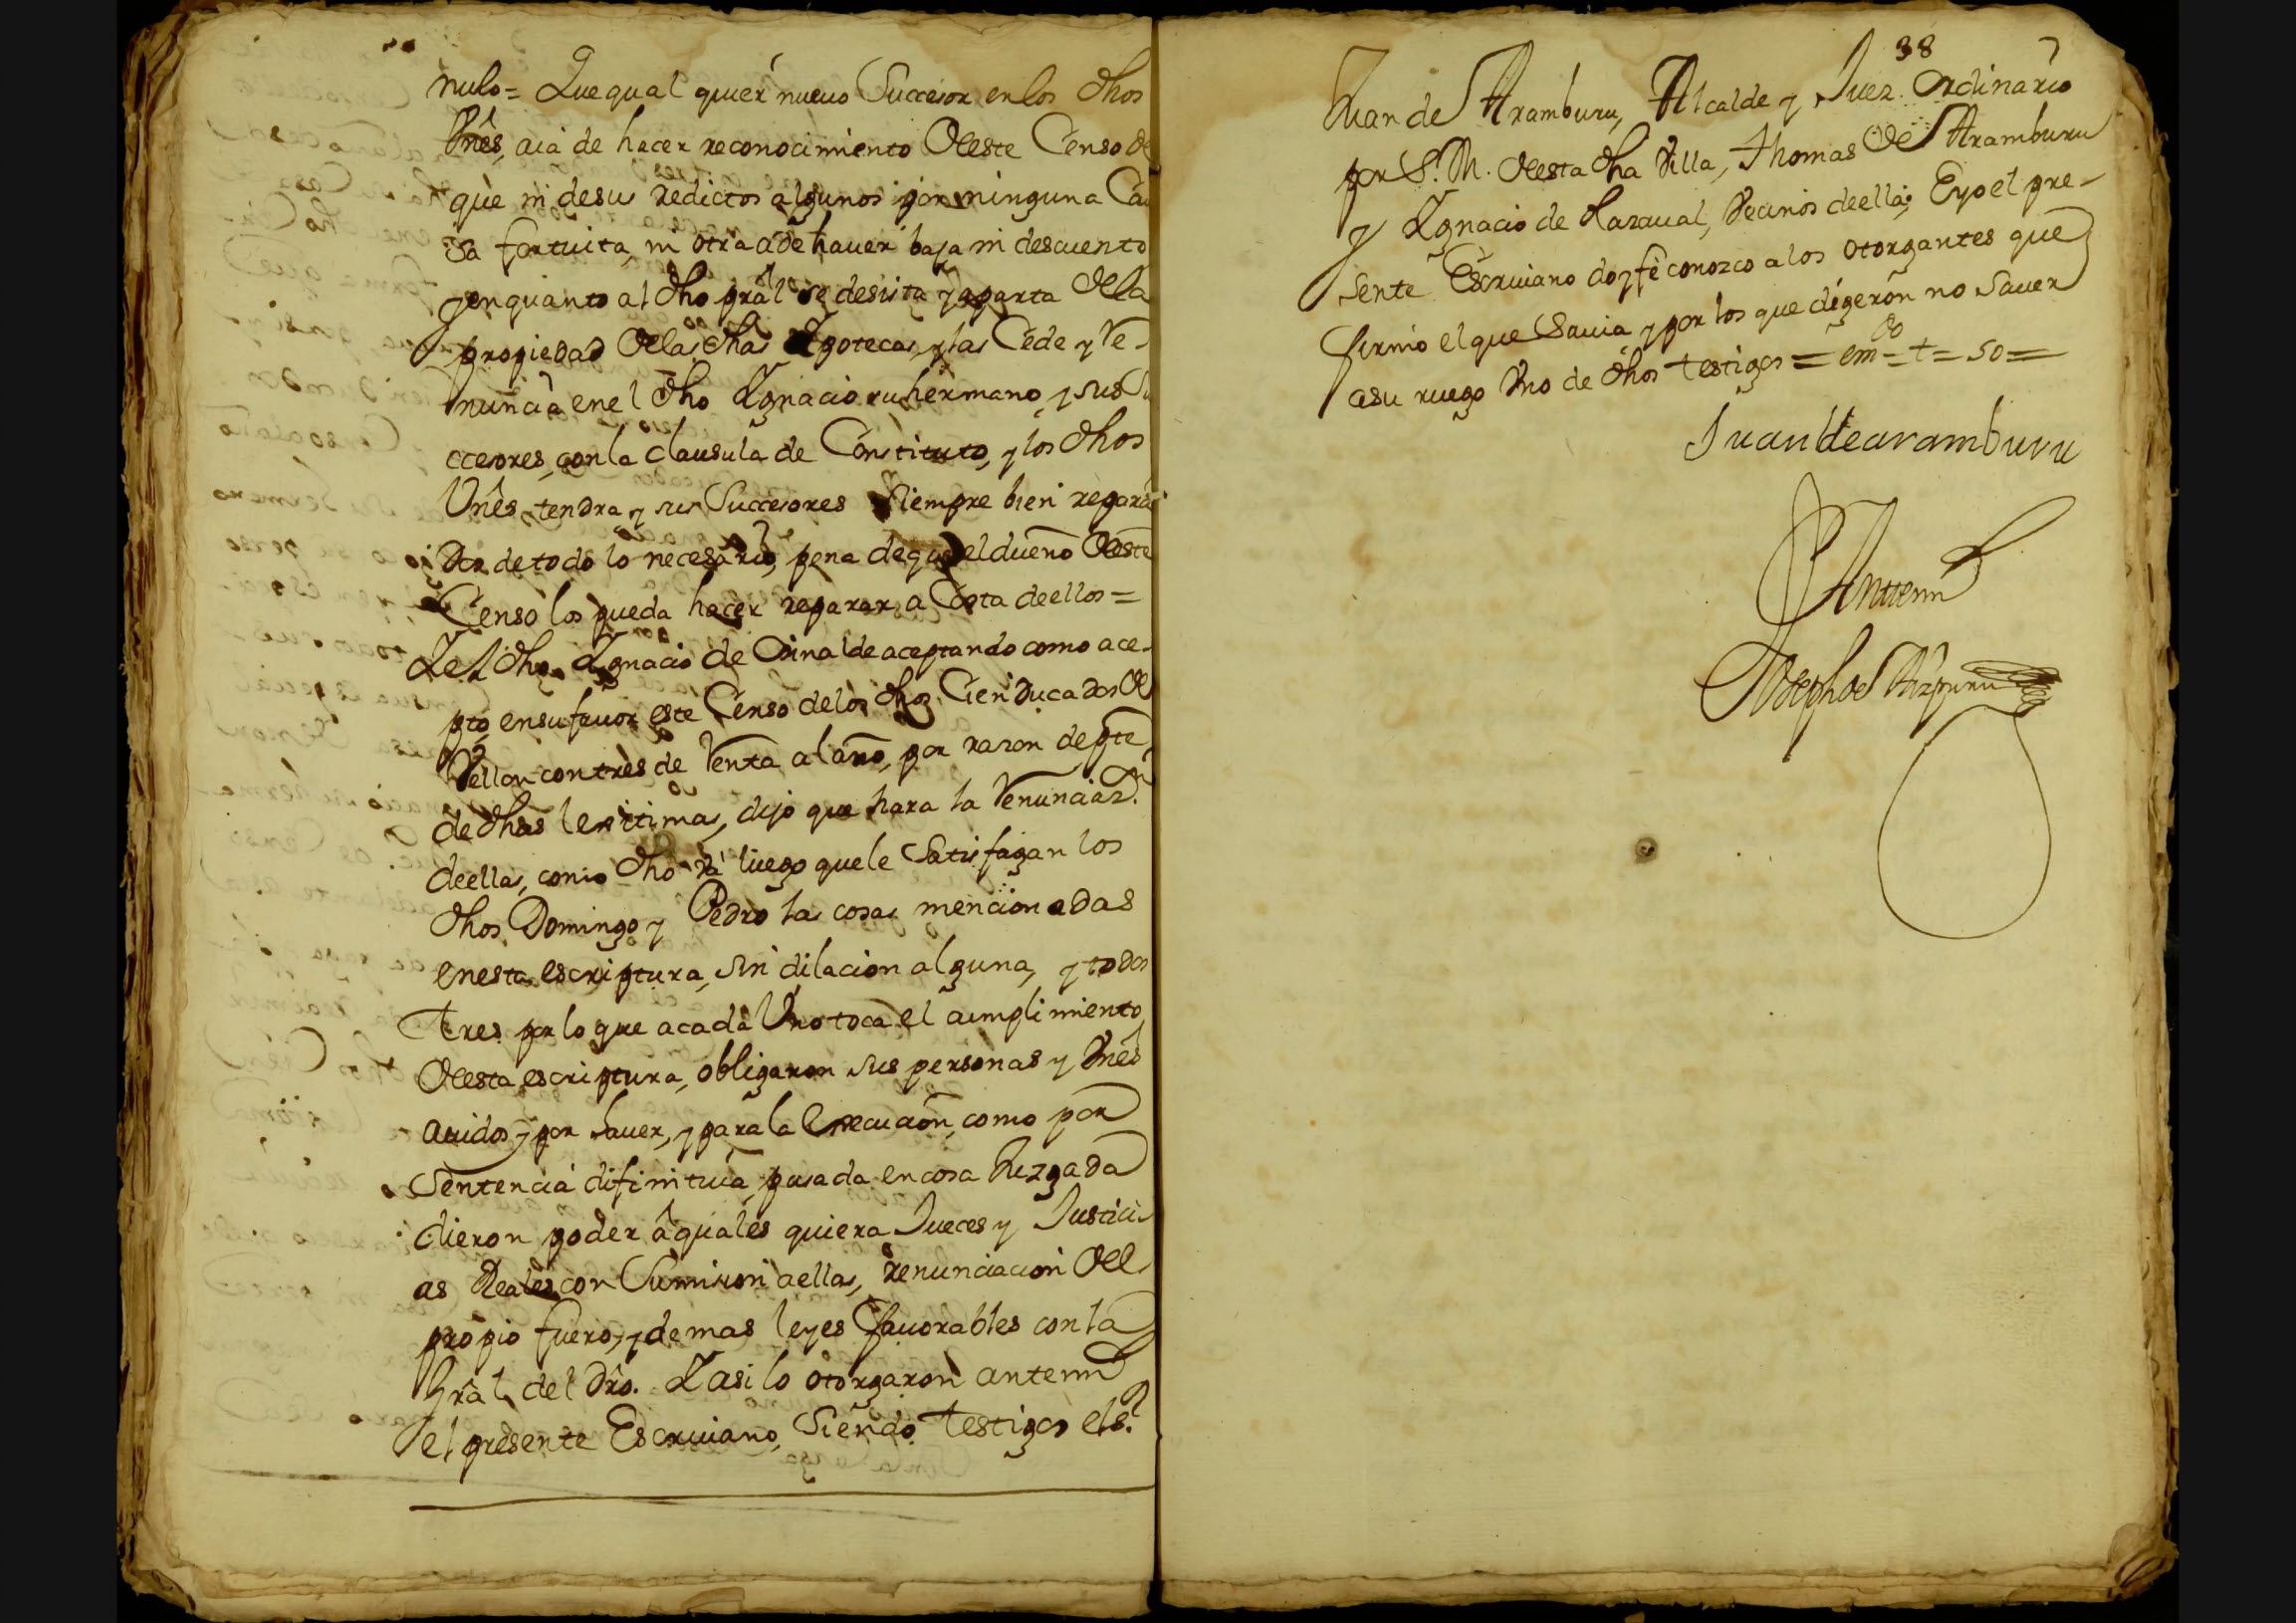 nulo = Que qual quier nueuo Succesor en los dhos
Vnês, aia de hacer reconocimiento deste Censo de
que ni de sus redictos algunos por ninguna Cau
sa fortuita, ni otra ade hauer baja ni descuento
y en quanto al dho prâl se desista y aparta dela
propiedad delas dhas Ypotecas, y las Cede y Re-
nuncia en el dho Ygnacio su hermano, y sus Su
ccesores, con la clausula de Constituto, y los dhos
Vnês tendra y sus Succesores siempre bien repara
dos de todo lo necesario, pena de que el dueño deste
Censo los pueda hacer reparar a Costa de ellos =
Y el dho Ygnacio de Oinalde aceptando como ace-
pto, en su fauor este Censo de los dhos Cien Ducados de
Vellon con tres de Renta al año, por razon de pte
de dhas lexitimas, dijo que hara la Renunciaz.n
de ellas, como dho va luego que le Satisfagan los
dhos Domingo y Pedro las cosas mencionadas
en esta escriptura, sin dilacion alguna, y todos
tres por lo que a cada Vno toca el cumplimiento
desta escriptura, obligaron sus personas y Vnês
auidos y por hauer, y para la Execucion, como por
Sentencia difinitiua pasada en cosa Juzgada
dieron poder â quales quiera Jueces y Justici-
as Reales con Sumision a ellas, renunciacion del
propio fuero, y demas leyes fauorables con la
Grâl del drô. Y asi lo otorgaron antemi
el presente Escriuano, Siendo testigos el s.r
38
Juan de Aramburu, Alcalde y Juez Ordinario
por S. M. desta dha Villa, Thomas de Aramburu
y Ygnacio de Larraual, Vecinos de ella; E yo el pre-
sente Escriuano doy fe conozco a los otorgantes que
firmo el que Sauia y por los que digeron no Sauer
a su ruego Vno de dhos testigos = em.do = t = so =
Juan de aramburu
Antemi
Joseph de Aizpuru